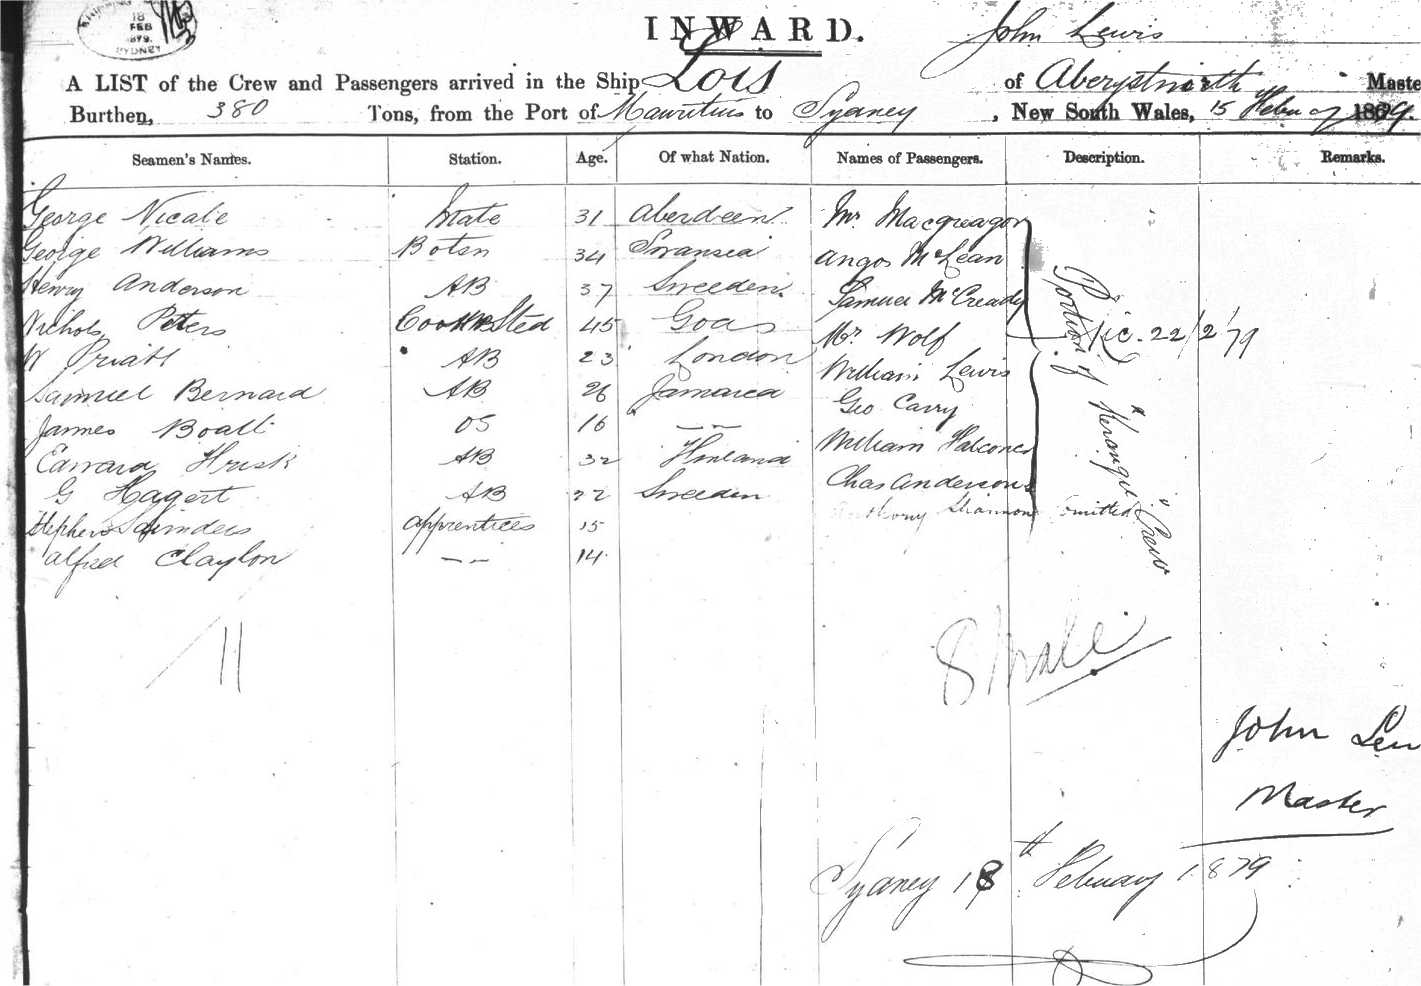 18
FEB
1879
SYDNEY
INWARD.
John Lewis
A LIST of the Crew and Passengers arrived in the Ship Lois of Aberystwith Maste
Burthen, 380 Tons, from the Port of Mauritius to Sydney, New South Wales, 15 Febuay 1879.
Seamen's Names. Station. Age. Of what Nation. Names of Passengers. Description. Remarks.
George Nicale Mate 31 Aberdeen Mr Macgreagor
George Williams Botsn 34 Swansea Angos McLean
Henry Anderson AB 37 Sweeden Samuel McCready
Nichols Peters Cook & Sted 45 Goa Mr Wolf Vic. 22/2/79
W Priatt AB 23 London William Lewis
Samuel Bernard AB 26 Jamaica Geo Carry
James Boatt OS 16 -- William Falconer
Edward Frisk AB 32 Finland Chas Anderson
G Hagert AB 22 Sweeden Anthony Shannon omitted
Stephen Saunders Apprentices 15
Alfred Clayton -- 14
Portion of "Kerangie" Crew
11
8 Male
John Lew
Master
Sydney 18th Febuary 1879